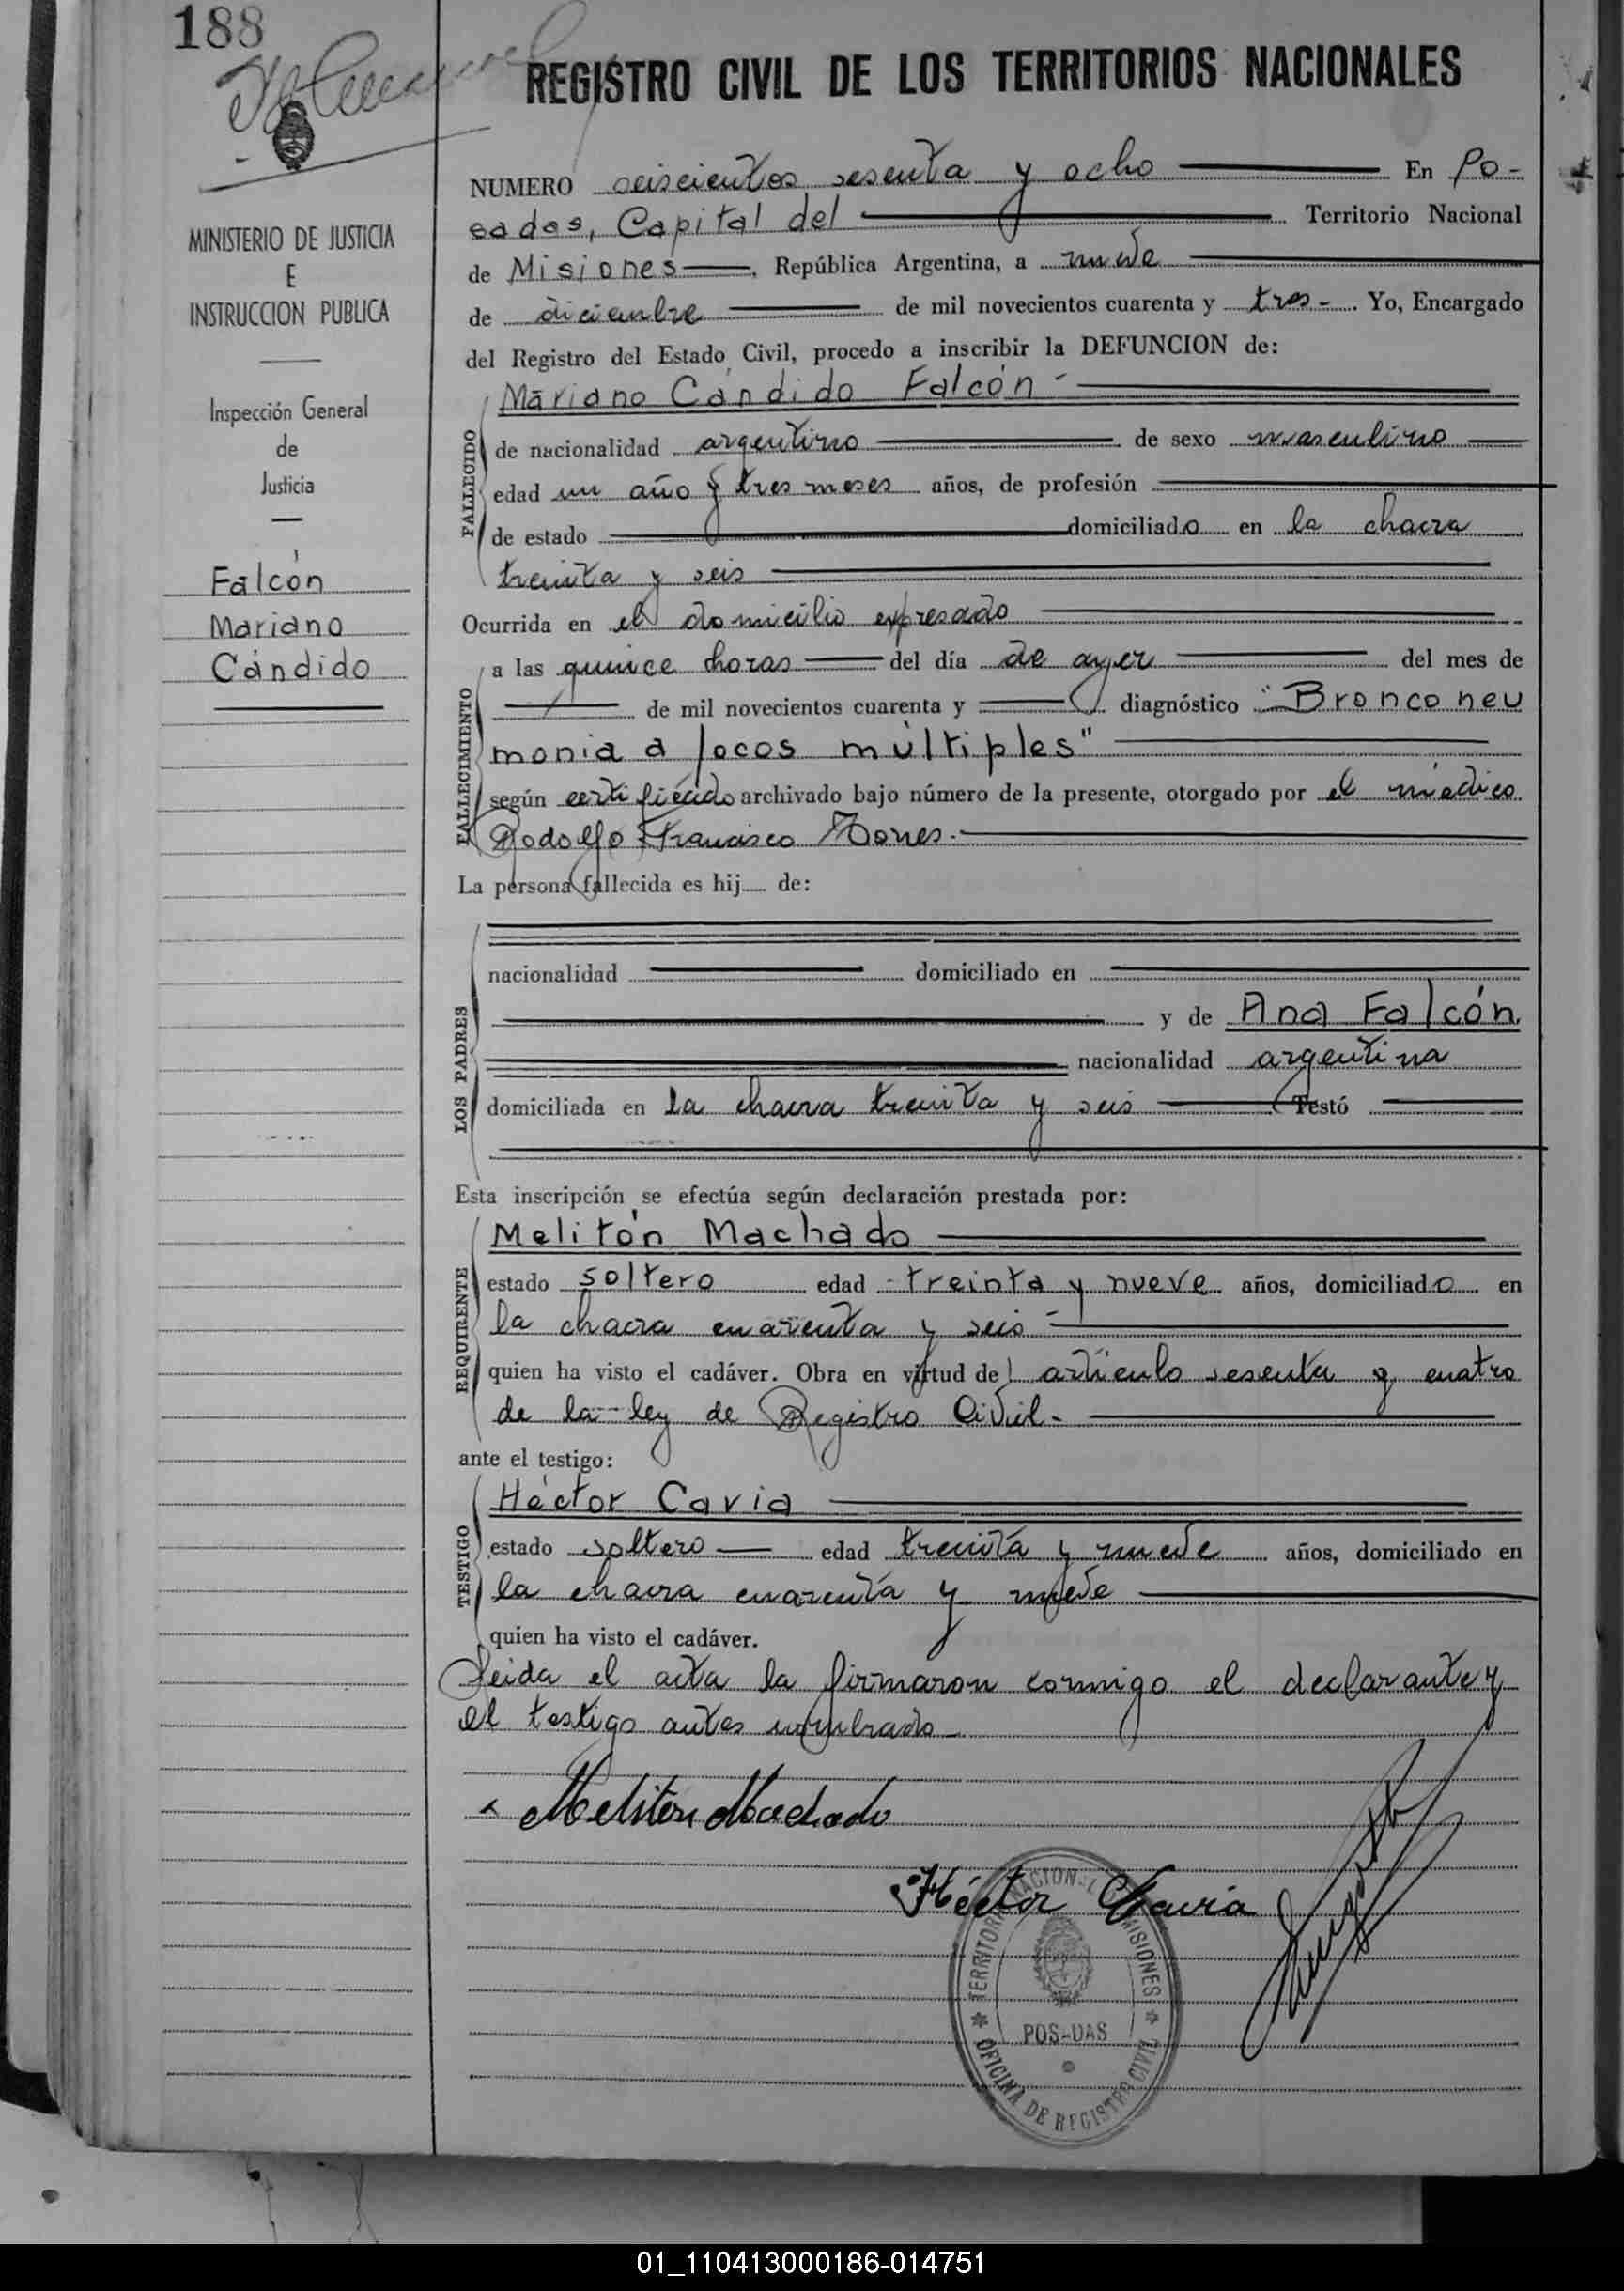 188
REGISTRO CIVIL DE LOS TERRITORIOS NACIONALES
MINISTERIO DE JUSTICIA
E
INSTRUCCION PUBLICA
Inspección General
de
Justicia
Falcón
Mariano
Cándido
NUMERO seiscientos sesenta y ocho En Po-
sadas, Capital del Territorio Nacional
de Misiones, República Argentina, a nueve
de diciembre de mil novecientos cuarenta y tres-. Yo, Encargado
del Registro del Estado Civil, procedo a inscribir la DEFUNCION de:
FALLECIDO
Mariano Cándido Falcón-
de nacionalidad argentino de sexo masculino
edad un año y tres meses años, de profesión
de estado domiciliado en la chacra
treinta y seis
Ocurrida en el domicilio expresado
FALLECIMIENTO
a las quince horas del día de ayer del mes de
de mil novecientos cuarenta y diagnóstico "Bronconeu
monia a focos múltiples"
según certificado archivado bajo número de la presente, otorgado por el médico
Rodolfo Francisco Torres.-
La persona fallecida es hij de:
LOS PADRES
nacionalidad domiciliado en
y de Ana Falcón
nacionalidad argentina
domiciliada en la chacra treinta y seis Testó
Esta inscripción se efectúa según declaración prestada por:
REQUIRENTE
Melitón Machado
estado soltero edad treinta y nueve años, domiciliado en
la chacra cuarenta y seis-
quien ha visto el cadáver. Obra en virtud del artículo sesenta y cuatro
de la ley de Registro Civil-
ante el testigo:
TESTIGO
Héctor Cavia
estado soltero edad treinta y nueve años, domiciliado en
la chacra cuarenta y nueve
quien ha visto el cadáver.
Leida el acta la firmaron conmigo el declarante y
el testigo antes nombrado-
Melitón Machado
Héctor Cavia
TERRITORIO NACIONAL DE MISIONES
POSADAS
OFICINA DE REGISTRO CIVIL
01_110413000186-014751